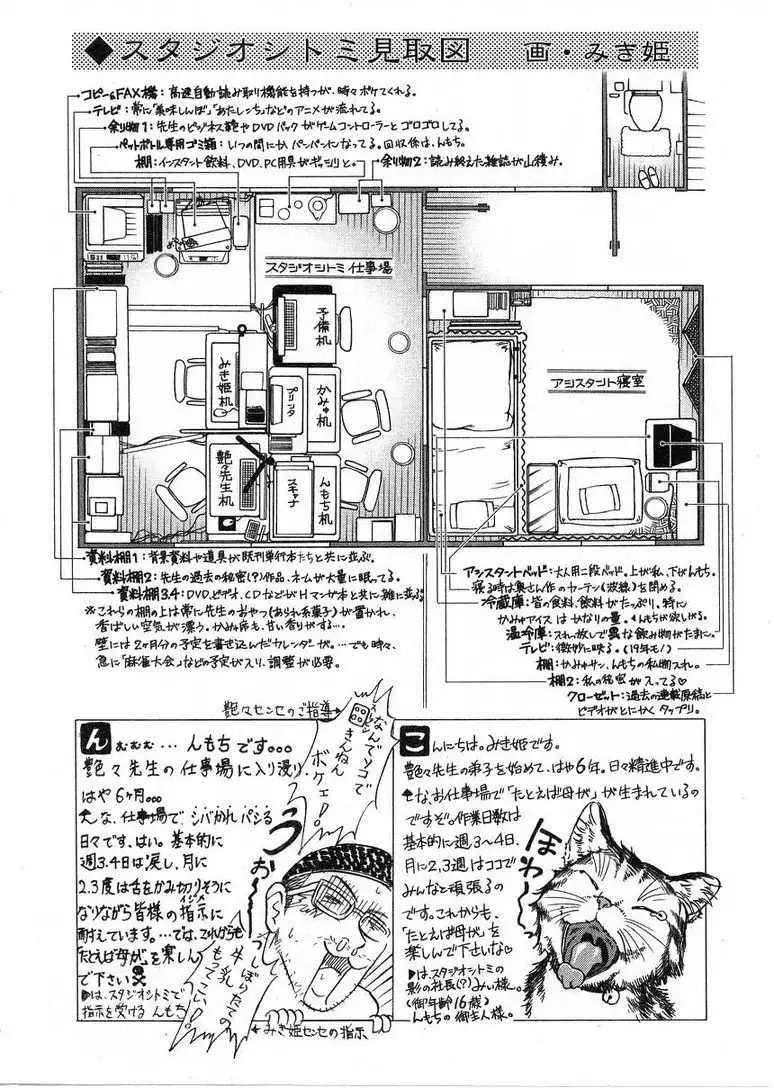 ◆スタジオシトミ見取図　画・みき姫
コピー&FAX機：高速自動読み取り機能を持つが、時々ボケてくれる。
テレビ：常に「美味しんぼ」「あたしンち」などのアニメが流れてる。
余り物1：先生のビジネス鞄やDVDパックがゲームコントローラーとゴロゴロしてる。
ペットボトル専用ゴミ箱：いつの間にかパーパーになってる。回収係は、んもち。
棚：インスタント飲料、DVD、PC用具がギッシリと。
余り物2：読み終えた雑誌が山積み。
スタジオシトミ仕事場
予備机
みき姫机
プリンタ
かみゅ机
艶々先生机
スキャナ
んもち机
アシスタント寝室
資料棚1：背景資料や道具が既刊単行本たちと共に並ぶ。
資料棚2：先生の過去の秘密(?)作品、ネームが大量に眠ってる。
資料棚3.4：DVD、ビデオ、CDなどがHマンガ本と共に雑に並ぶ。
※これらの棚の上は常に先生のおやつ(あられ系菓子)が置かれ、
香ばしい空気が漂う。かみゅ席も、甘い香りがする…。
壁には2ヶ月分の予定を書き込んだカレンダーが。…でも時々、
急に「麻雀大会」などの予定が入り、調整が必要。
アシスタントベッド：大人用二段ベッド。上が私、下がんもち。
寝る時は奥さん作のカーテン(波線)を閉める。
冷蔵庫：皆の食料、飲料がたっぷり。特に
かみゅアイスはかなりの量。んもちが欲しがる。
温冷庫：スれっ放しで異な飲み物がたまに。
テレビ：微妙に映る。(19年モノ)
棚：かみゅサン、んもちの私物入れ。
棚2：私の秘密が入ってる♡
クローゼット：過去の連載原稿と
ビデオがとにかくタップリ。
艶々センセのご指導→
なんでソコで
きんねん
ボケェ！
んぉむむむ…んもちです。。。
艶々先生の仕事場に入り浸り、
はや6ヶ月。。。
そんな、仕事場でシバかれパシる
日々です、はい。基本的に
週3.4日は涙し、月に
2.3度は舌をかみ切りそうに
なりながら皆様の指示に
イジメ
耐えています。…では、これからも
「たとえば母が」を楽しん
で下さい☠
▶は、スタジオシトミで
指示を受ける んもち
うぉーっ
しぼりたての
牛乳
もってこい！
←みき姫センセの指示
こんにちは。みき姫です。
艶々先生の弟子を始めて、はや6年。日々精進中です。
そんな、お仕事場で「たとえば母が」が生まれているの
ですぞ。作業日数は
基本的に週3〜4日、
月に2,3週はココで
みんなと頑張るの
です。これからも、
「たとえば母が」を
楽しんで下さいな♡
▶は、スタジオシトミの
影の社長(?)みぃ様〜。
(御年齢16歳)
んもちの御主人様。
ほわ〜